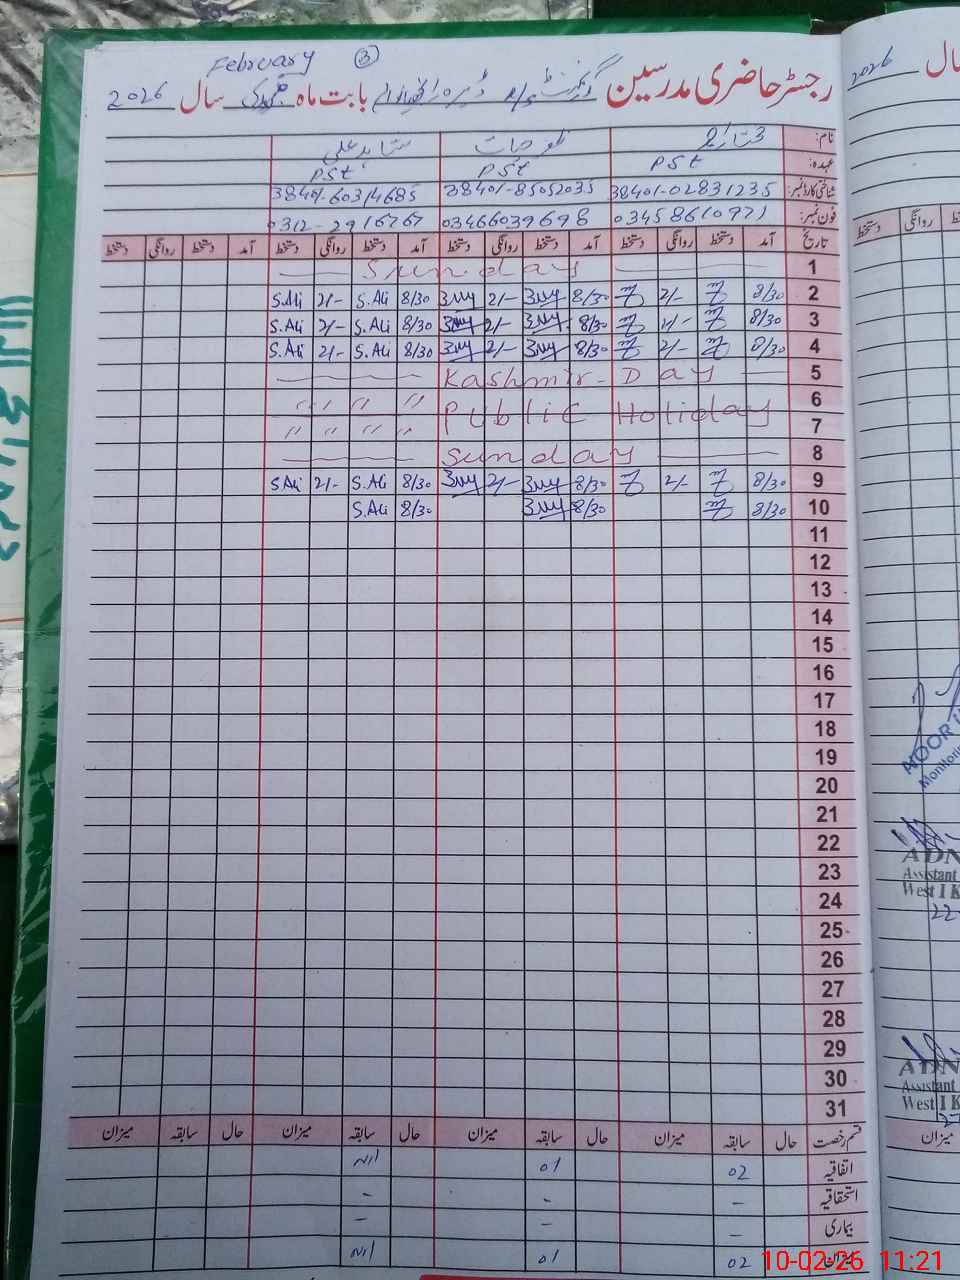 February 3
رجسٹر حاضری مدرسین گورنمنٹ بابت ماہ فروری سال 2026
نام:
عہدہ: PSt PSt PSt
شناختی کارڈ نمبر: 38401-02831235 38401-85052035 38401-60314685
فون نمبر: 03458610971 03466039698 0312-2916767
تاریخ آمد دستخط روانگی دستخط آمد دستخط روانگی دستخط آمد دستخط روانگی دستخط آمد دستخط روانگی دستخط
1 Sunday
2 8/30 2/- 8/30 2/- 8/30 S.Ali 2/- S.Ali
3 8/30 2/- 8/30 2/- 8/30 S.Ali 2/- S.Ali
4 8/30 2/- 8/30 2/- 8/30 S.Ali 2/- S.Ali
5 Kashmir-Day
6 Public Holiday " " " "
7 " " " "
8 Sunday
9 8/30 2/- 8/30 2/- 8/30 S.Ali 2/- S.Ali
10 8/30 8/30 8/30 S.Ali
11
12
13
14
15
16
17
18
19
20
21
22
23
24
25
26
27
28
29
30
31
قسم رخصت حال سابقہ میزان حال سابقہ میزان حال سابقہ میزان حال سابقہ میزان
اتفاقیہ 02 01 Nil
استحقاقیہ - - -
بیماری - - -
میزان 02 01 Nil
2026 سال
دستخط روانگی دستخط
NOOR
Monitoring
ADN
Assistant
West I K
22-
ADN
Assistant
West I K
میزان
10-02-26 11:21